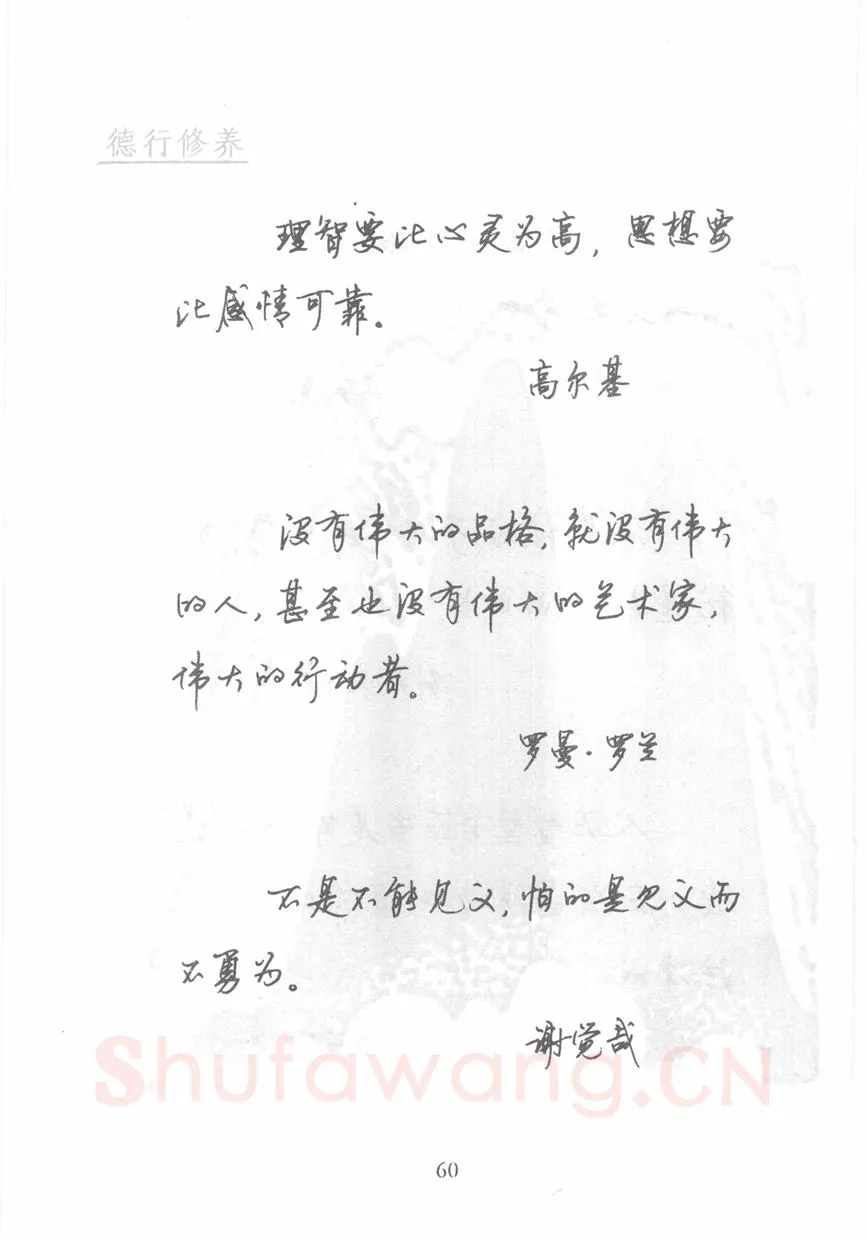 德行修养
理智要比心灵为高，思想要
比感情可靠。
高尔基
没有伟大的品格，就没有伟大
的人，甚至也没有伟大的艺术家，
伟大的行动者。
罗曼·罗兰
不是不能见义，怕的是见义而
不勇为。
谢觉哉
Shufawang.CN
60